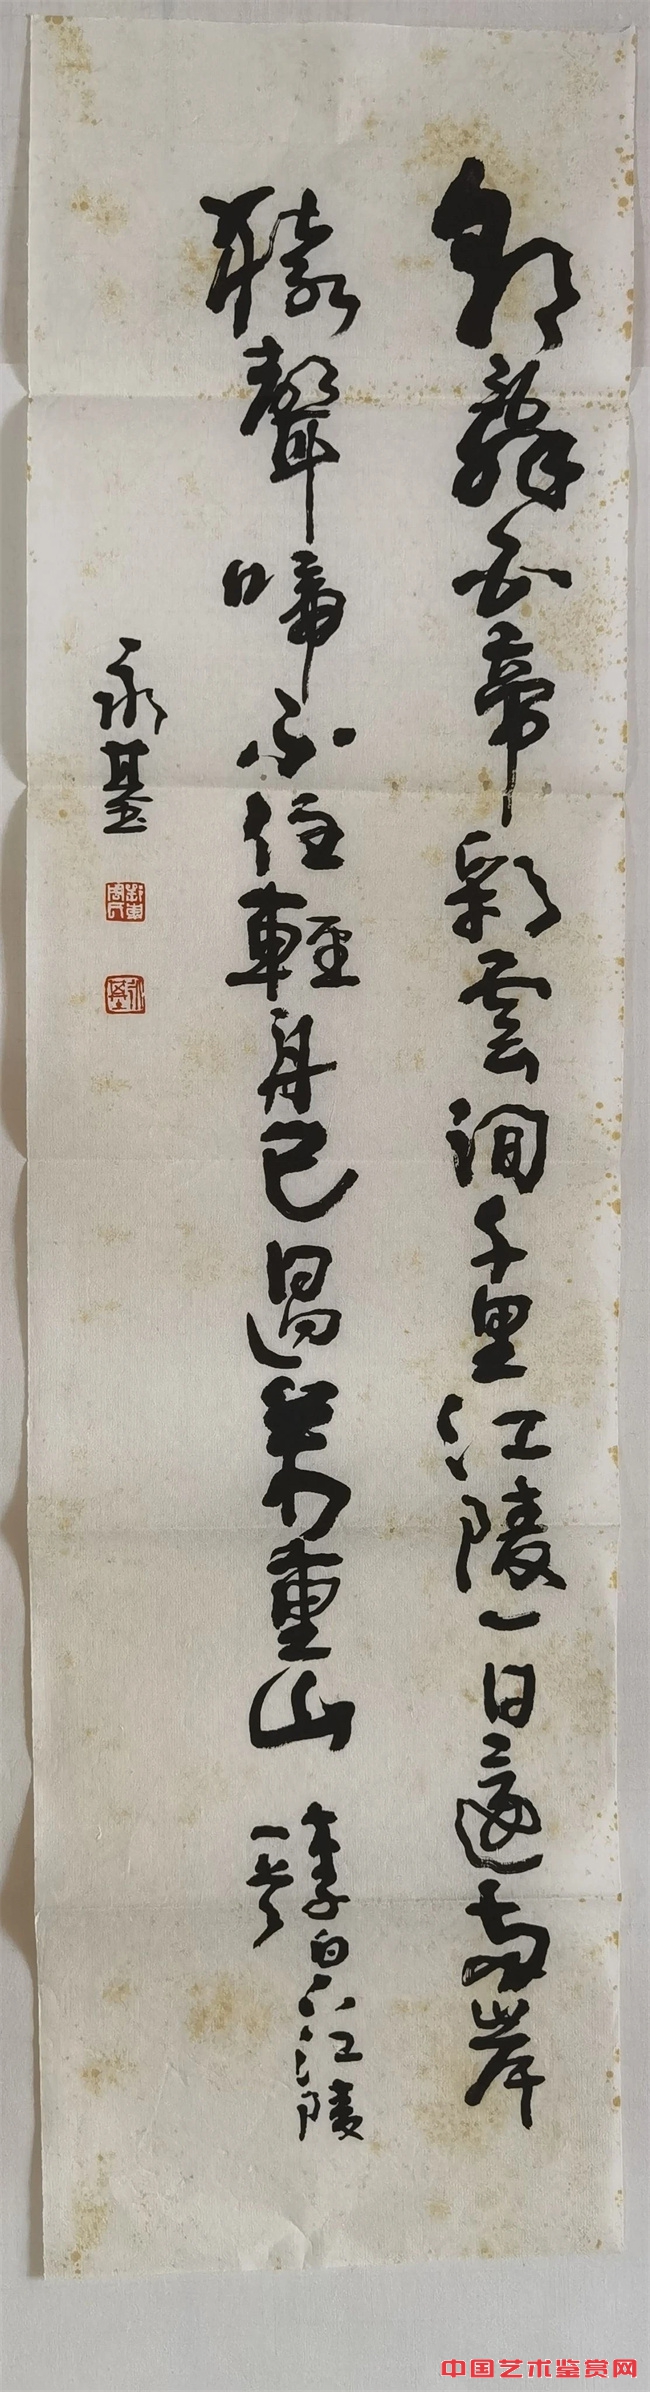 朝辞白帝彩雲间千里江陵一日還両岸
猿聲啼不住輕舟已過萬重山
李白下江陵
一首
永基
中国艺术鉴赏网